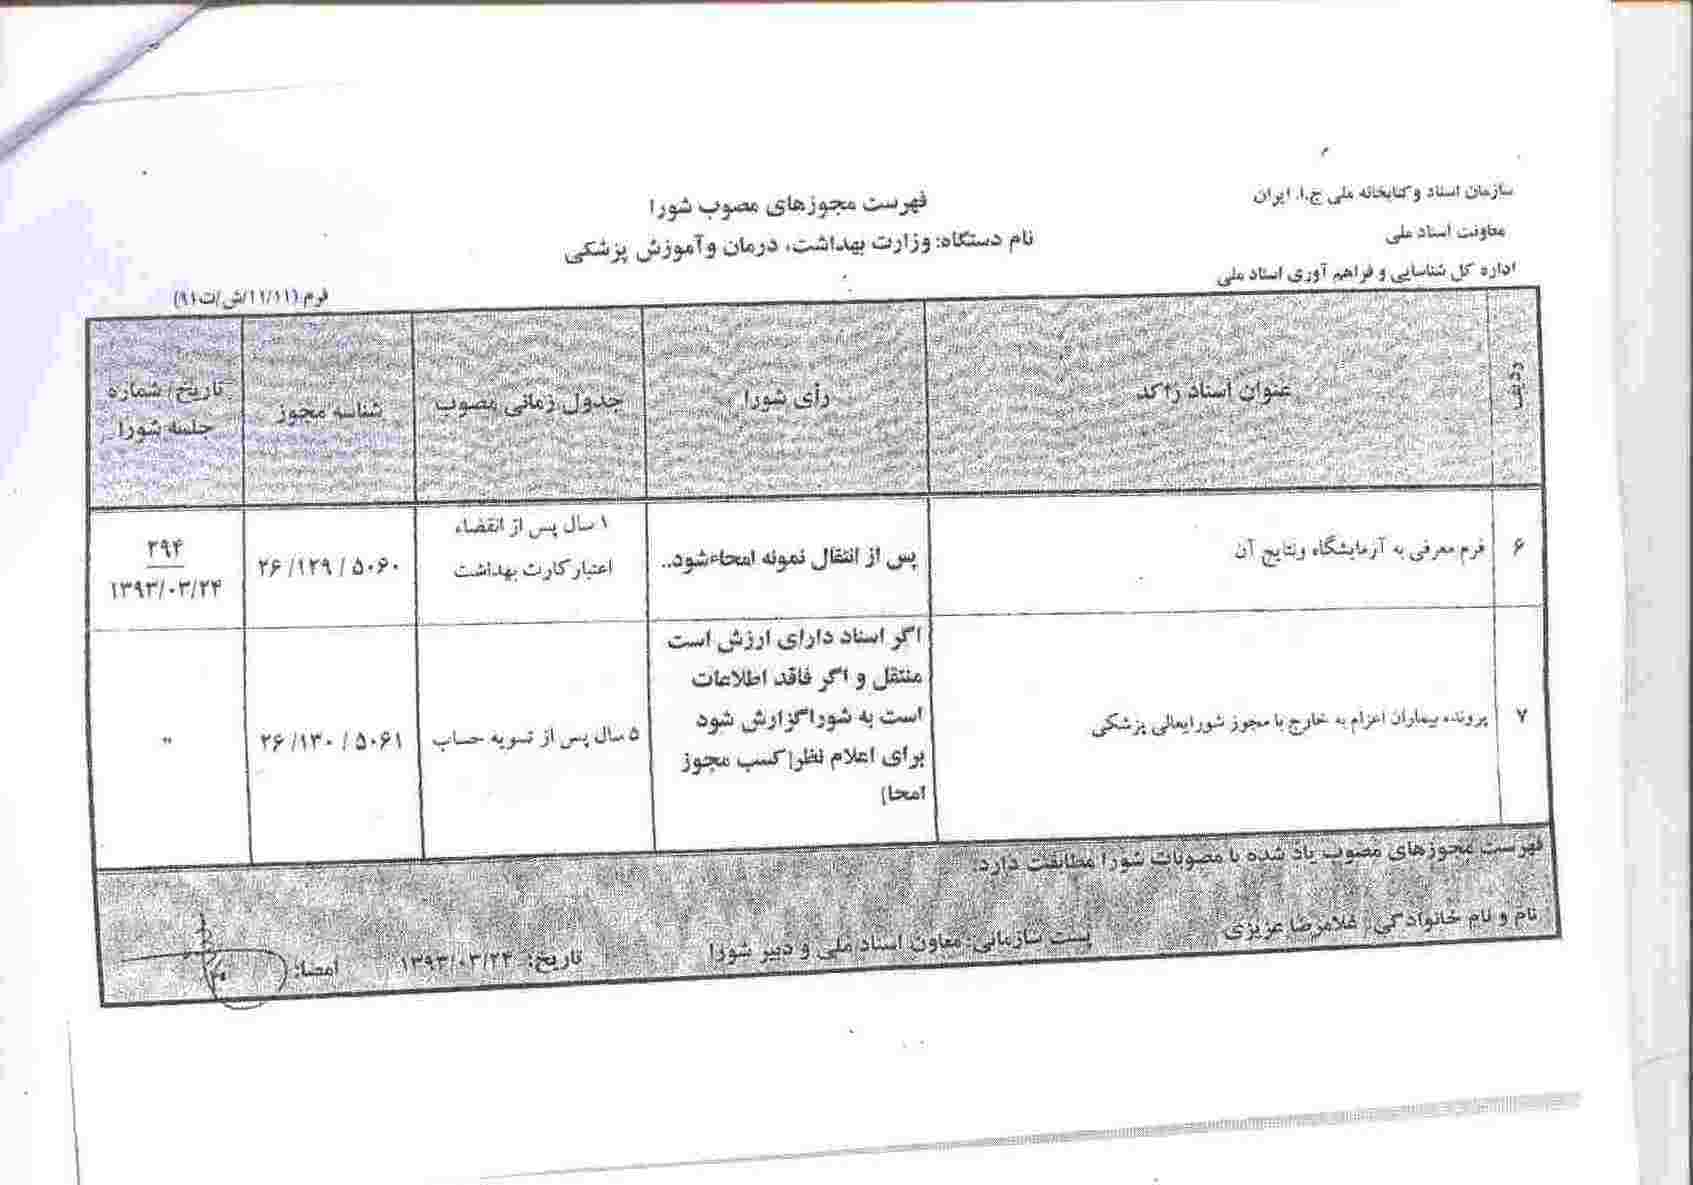 سازمان اسناد و کتابخانه ملی ج.ا. ایران
معاونت اسناد ملی
اداره کل شناسایی و فراهم آوری اسناد ملی
فهرست مجوزهای مصوب شورا
نام دستگاه: وزارت بهداشت، درمان وآموزش پزشکی
فرم (۱۱/۱۱/ش/ت۹۱)
ردیف
عنوان اسناد راکد
رأی شورا
جدول زمانی مصوب
شناسه مجوز
تاریخ/ شماره
جلسه شورا
۶
فرم معرفی به آزمایشگاه ونتایج آن
پس از انتقال نمونه امحاءشود..
۱ سال پس از انقضاء
اعتبار کارت بهداشت
۲۶/۱۲۹/ ۵۰۶۰
۲۹۴
۱۳۹۳/۰۳/۲۴
۷
پرونده بیماران اعزام به خارج با مجوز شورایعالی پزشکی
اگر اسناد دارای ارزش است
منتقل و اگر فاقد اطلاعات
است به شوراگزارش شود
برای اعلام نظر(کسب مجوز
امحا)
۵ سال پس از تسویه حساب
۲۶/۱۳۰/ ۵۰۶۱
"
فهرست مجوزهای مصوب یاد شده با مصوبات شورا مطابقت دارد.
نام و نام خانوادگی: غلامرضا عزیزی پست سازمانی: معاون اسناد ملی و دبیر شورا تاریخ: ۱۳۹۳/۰۳/۲۴ امضا: